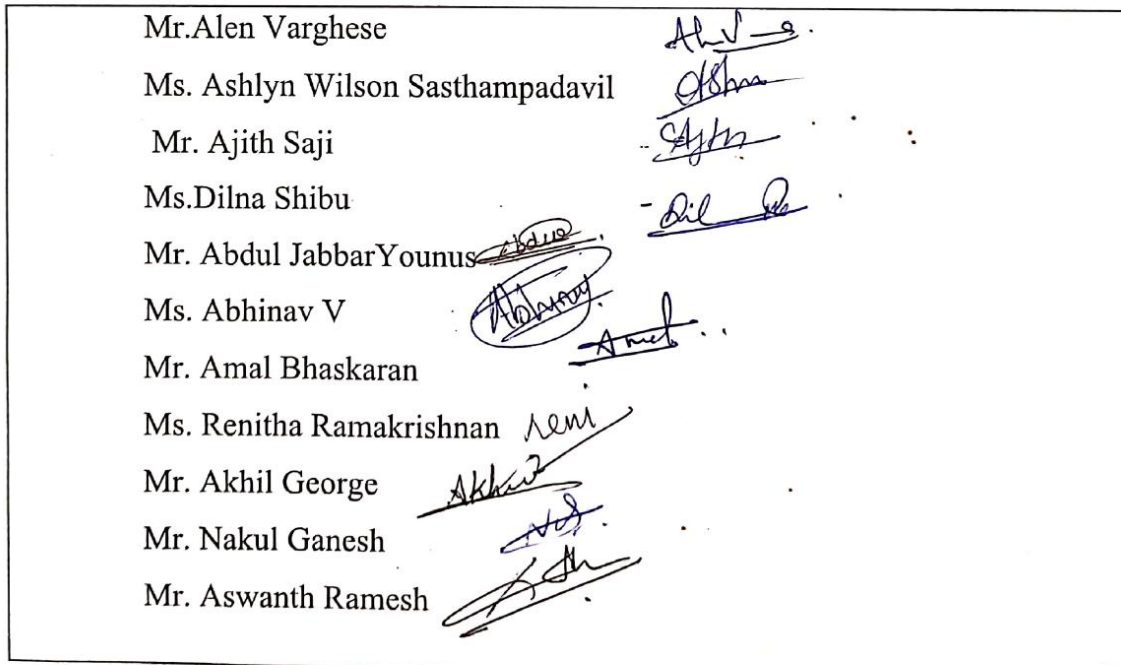 Mr.Alen Varghese
Ms. Ashlyn Wilson Sasthampadavil
Mr. Ajith Saji
Ms.Dilna Shibu
Mr. Abdul JabbarYounus
Ms. Abhinav V
Mr. Amal Bhaskaran
Ms. Renitha Ramakrishnan reni
Mr. Akhil George
Mr. Nakul Ganesh
Mr. Aswanth Ramesh